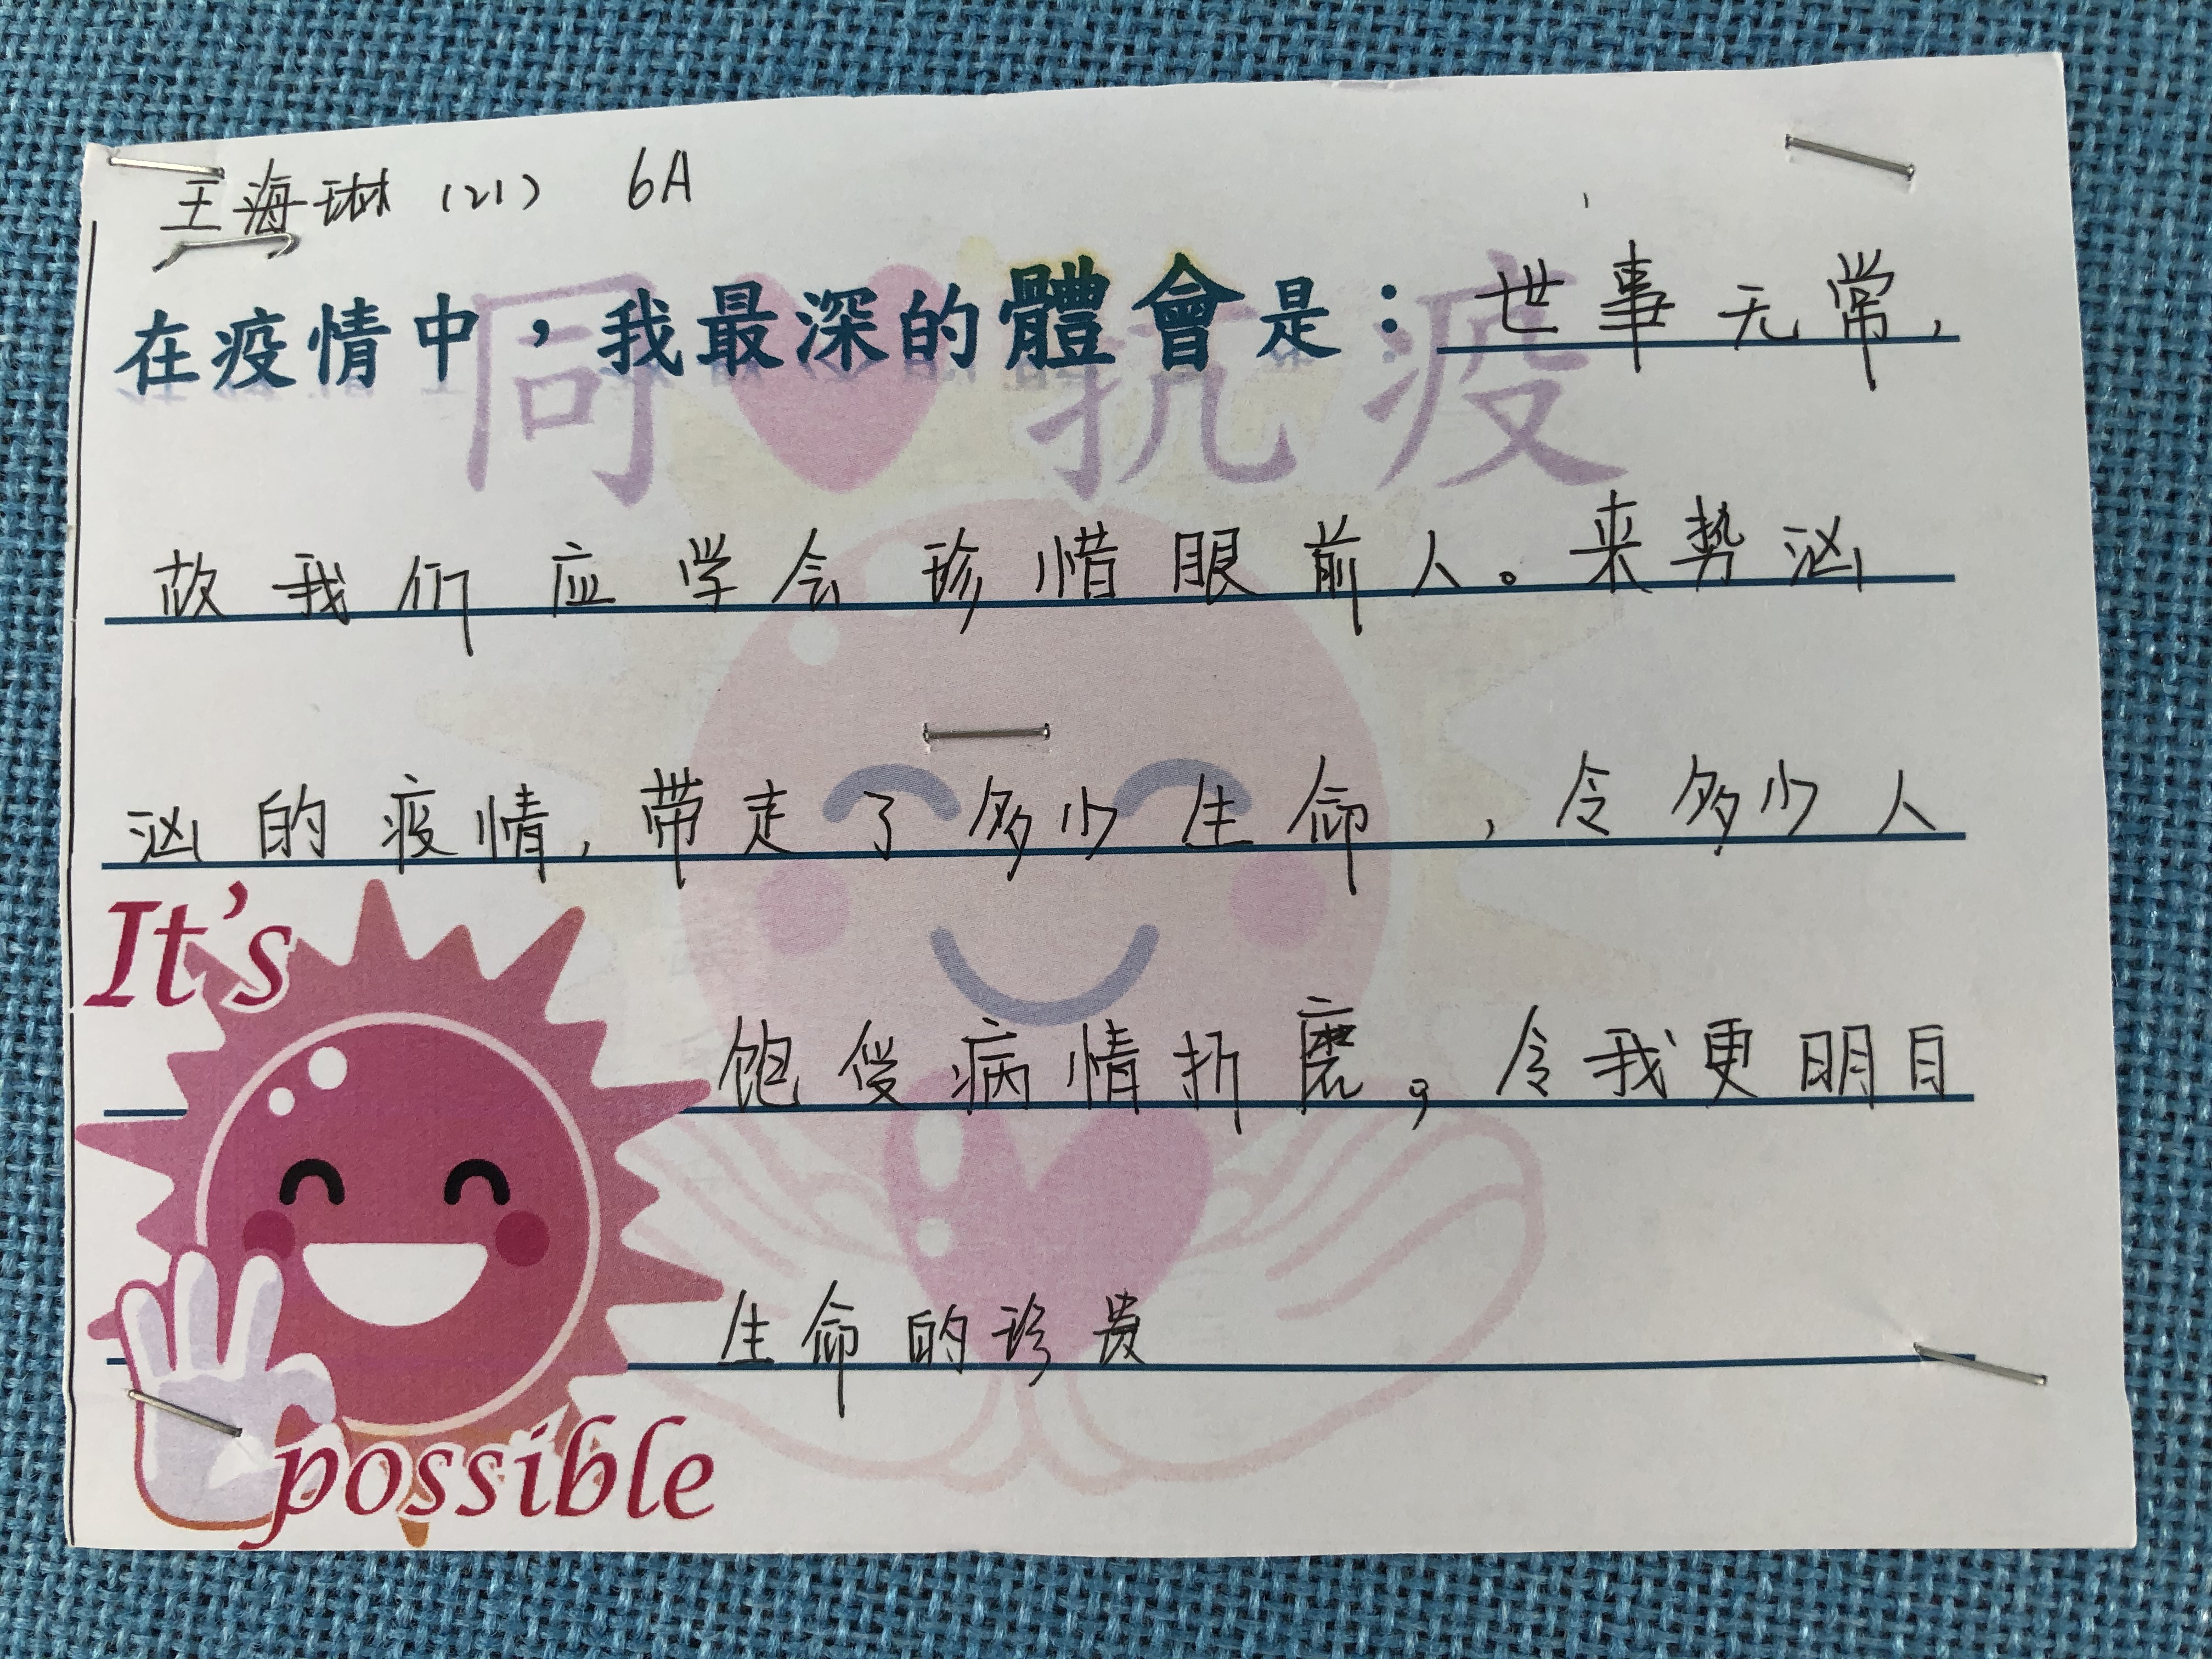 王海琳 (21) 6A
同 抗疫
在疫情中，我最深的體會是：世事无常，
故我们应学会珍惜眼前人。来势汹
汹的疫情，带走了多少生命，令多少人
饱受病情折磨。令我更明白
生命的珍贵
It's
possible